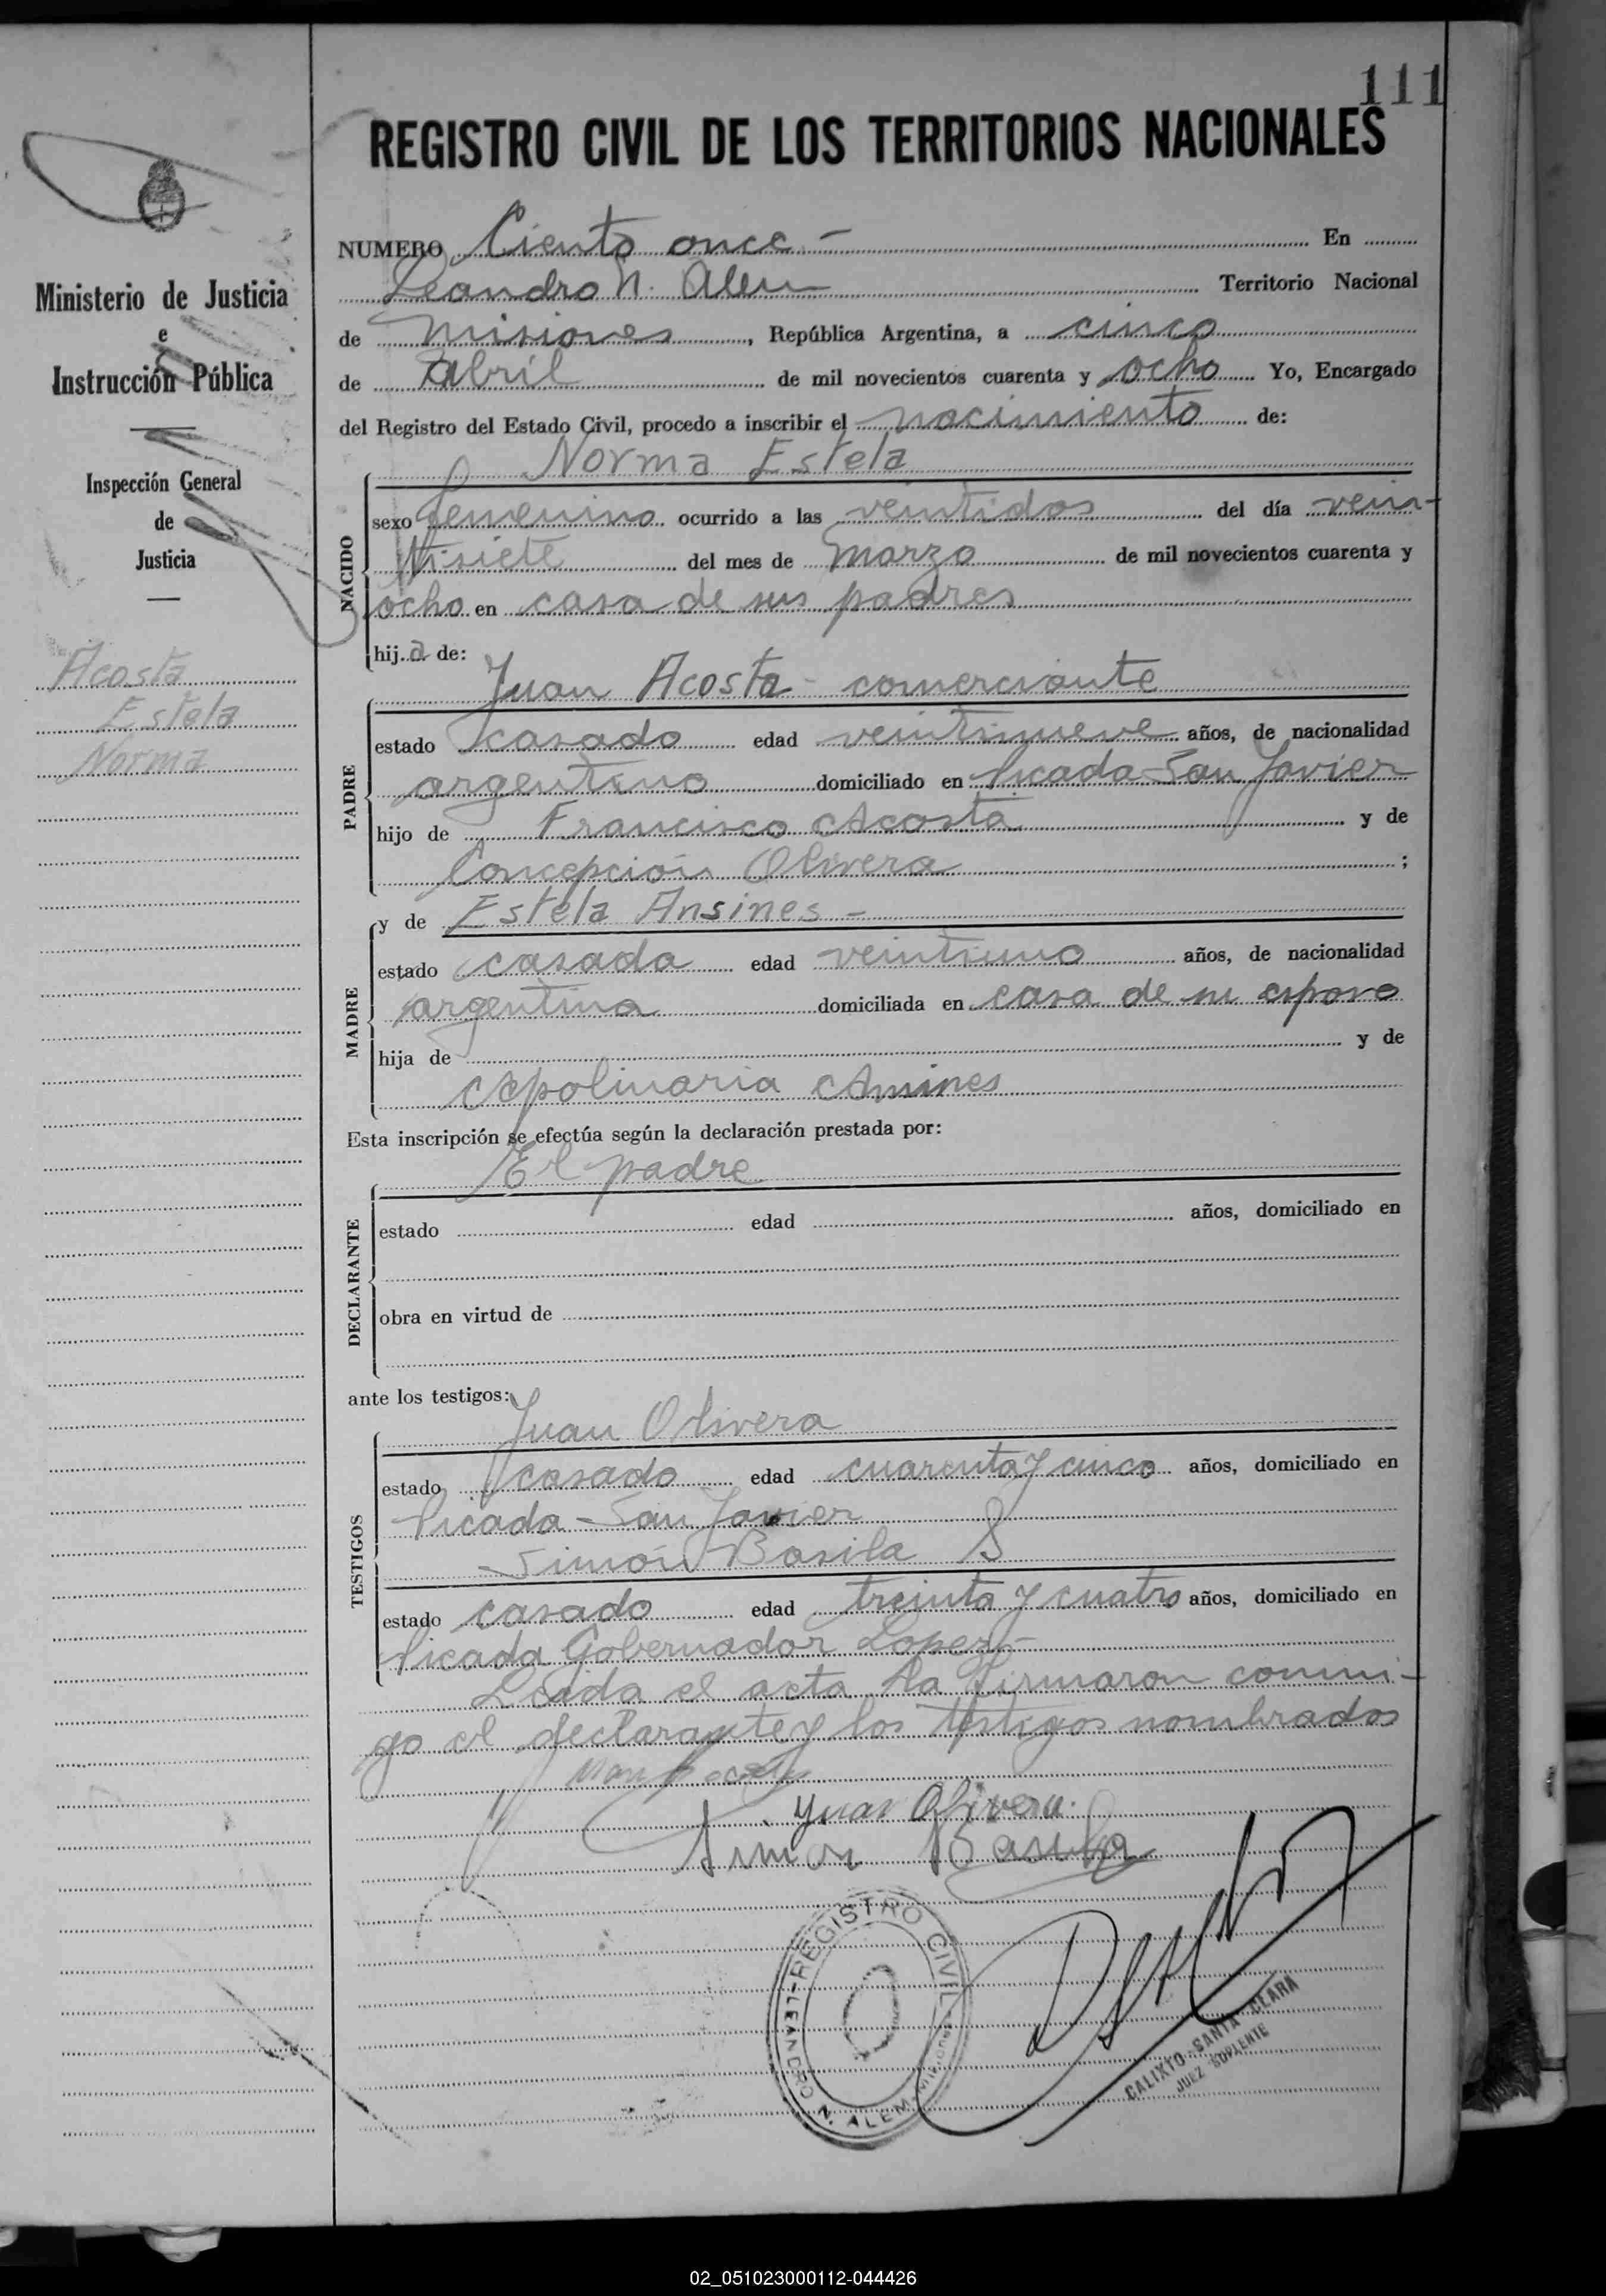 111
REGISTRO CIVIL DE LOS TERRITORIOS NACIONALES
Ministerio de Justicia
e
Instrucción Pública
Inspección General
de
Justicia
Acosta
Estela
Norma
NUMERO Ciento once - En
Leandro N. Alem Territorio Nacional
de Misiones, República Argentina, a cinco
de Abril de mil novecientos cuarenta y ocho Yo, Encargado
del Registro del Estado Civil, procedo a inscribir el nacimiento de:
Norma Estela
NACIDO
sexo femenino ocurrido a las veintidos del día vein-
tisiete del mes de marzo de mil novecientos cuarenta y
ocho en casa de sus padres
hij a de:
Juan Acosta - comerciante
PADRE
estado casado edad veintinueve años, de nacionalidad
argentino domiciliado en Picada San Javier
hijo de Francisco Acosta y de
Concepción Olivera ;
y de Estela Ansines -
MADRE
estado casada edad veintiuno años, de nacionalidad
argentina domiciliada en casa de su esposo
hija de y de
Apolinaria Ansines
Esta inscripción se efectúa según la declaración prestada por:
El padre
DECLARANTE
estado edad años, domiciliado en
obra en virtud de
ante los testigos:
Juan Olivera
TESTIGOS
estado casado edad cuarenta y cinco años, domiciliado en
Picada San Javier
Simón Basila S
estado casado edad treinta y cuatro años, domiciliado en
Picada Gobernador Lopez -
Leida el acta la firmaron conmi-
go el declarante y los testigos nombrados
Juan Olivera
Simon Basila
REGISTRO CIVIL
LEANDRO N. ALEM
CALIXTO SANTA CLARA
JUEZ SUPLENTE
02_051023000112-044426